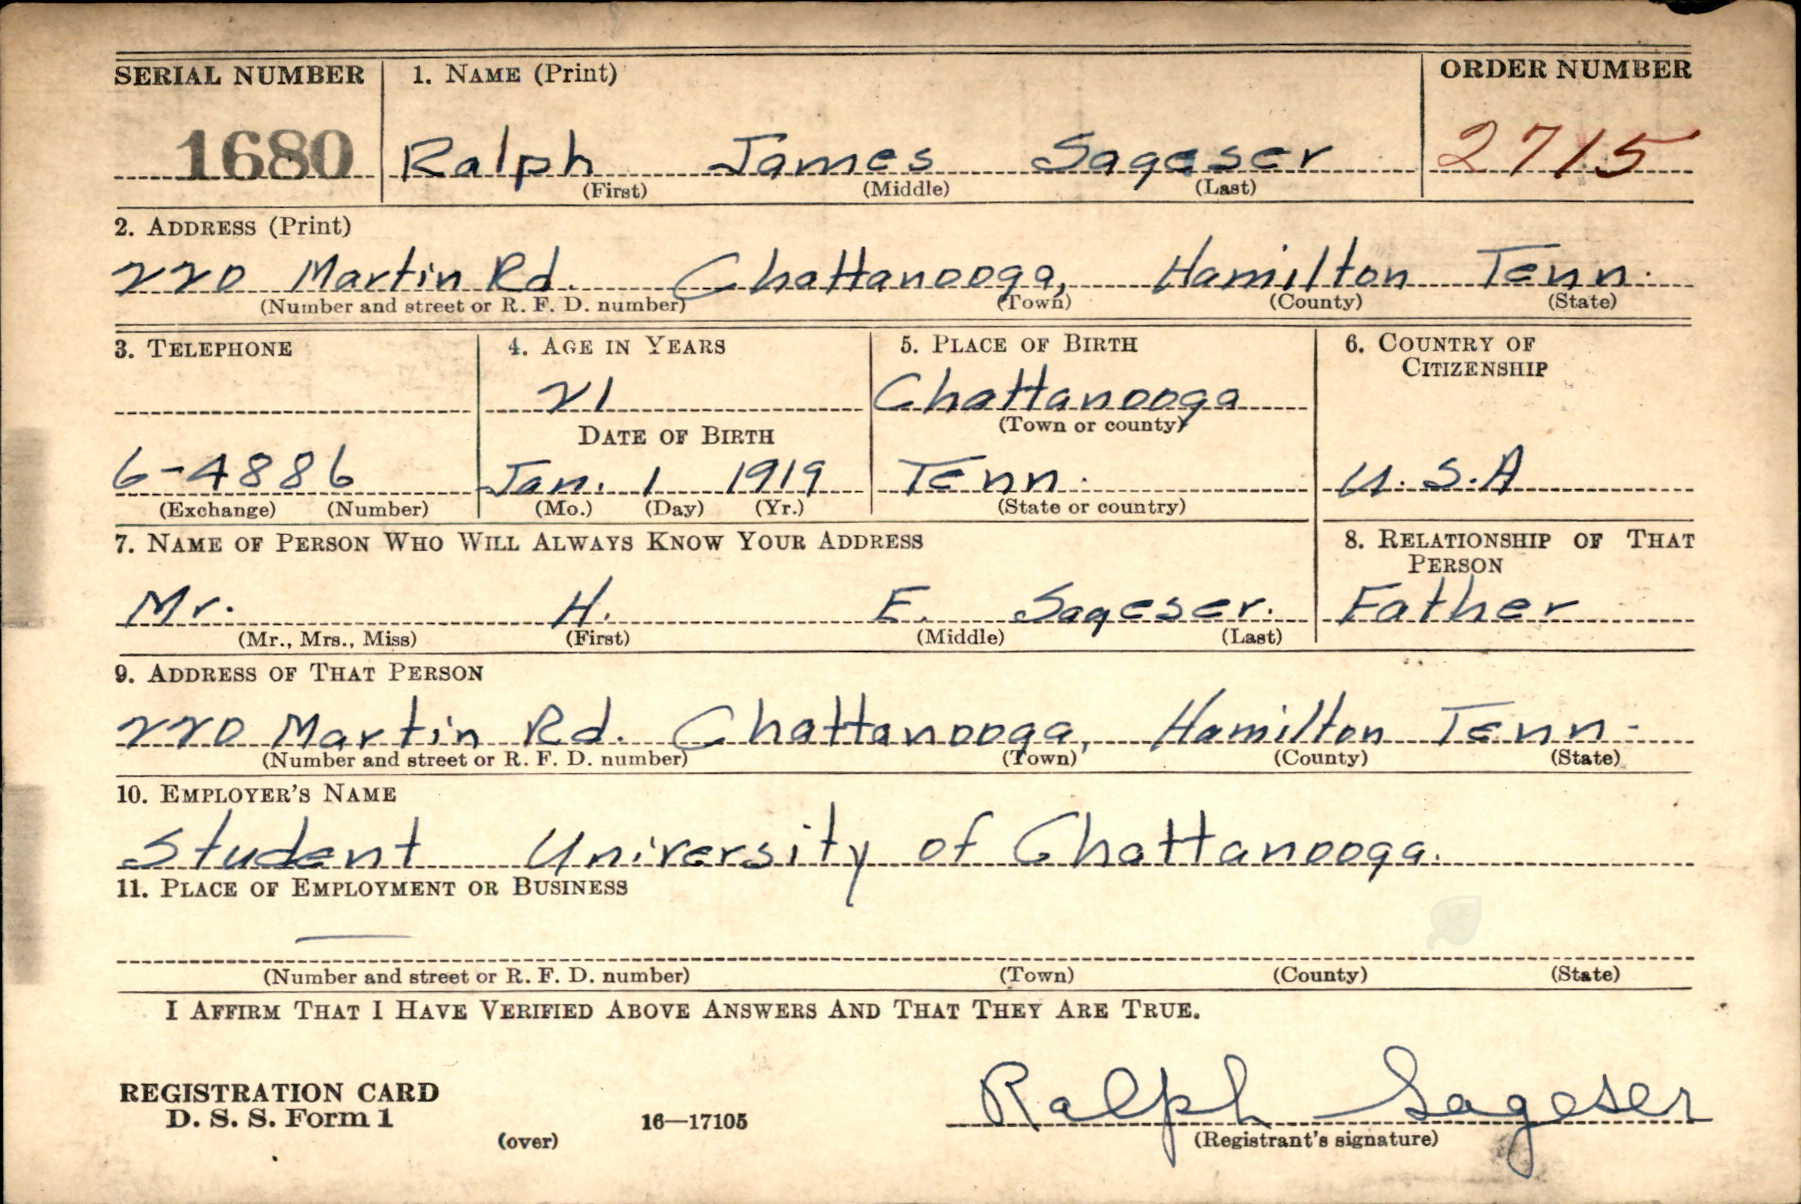 SERIAL NUMBER 1. NAME (Print) ORDER NUMBER
1680 Ralph James Sageser 2715
(First) (Middle) (Last)
2. ADDRESS (Print)
220 Martin Rd. Chattanooga, Hamilton Tenn.
(Number and street or R. F. D. number) (Town) (County) (State)
3. TELEPHONE 4. AGE IN YEARS 5. PLACE OF BIRTH 6. COUNTRY OF
CITIZENSHIP
21 Chattanooga
DATE OF BIRTH (Town or county)
6-4886 Jan. 1 1919 Tenn. U.S.A
(Exchange) (Number) (Mo.) (Day) (Yr.) (State or country)
7. NAME OF PERSON WHO WILL ALWAYS KNOW YOUR ADDRESS 8. RELATIONSHIP OF THAT
PERSON
Mr. H. E. Sageser. Father
(Mr., Mrs., Miss) (First) (Middle) (Last)
9. ADDRESS OF THAT PERSON
220 Martin Rd. Chattanooga, Hamilton Tenn.
(Number and street or R. F. D. number) (Town) (County) (State)
10. EMPLOYER'S NAME
Student University of Chattanooga.
11. PLACE OF EMPLOYMENT OR BUSINESS
—
(Number and street or R. F. D. number) (Town) (County) (State)
I AFFIRM THAT I HAVE VERIFIED ABOVE ANSWERS AND THAT THEY ARE TRUE.
REGISTRATION CARD
D. S. S. Form 1 16—17105 Ralph Sageser
(over) (Registrant's signature)